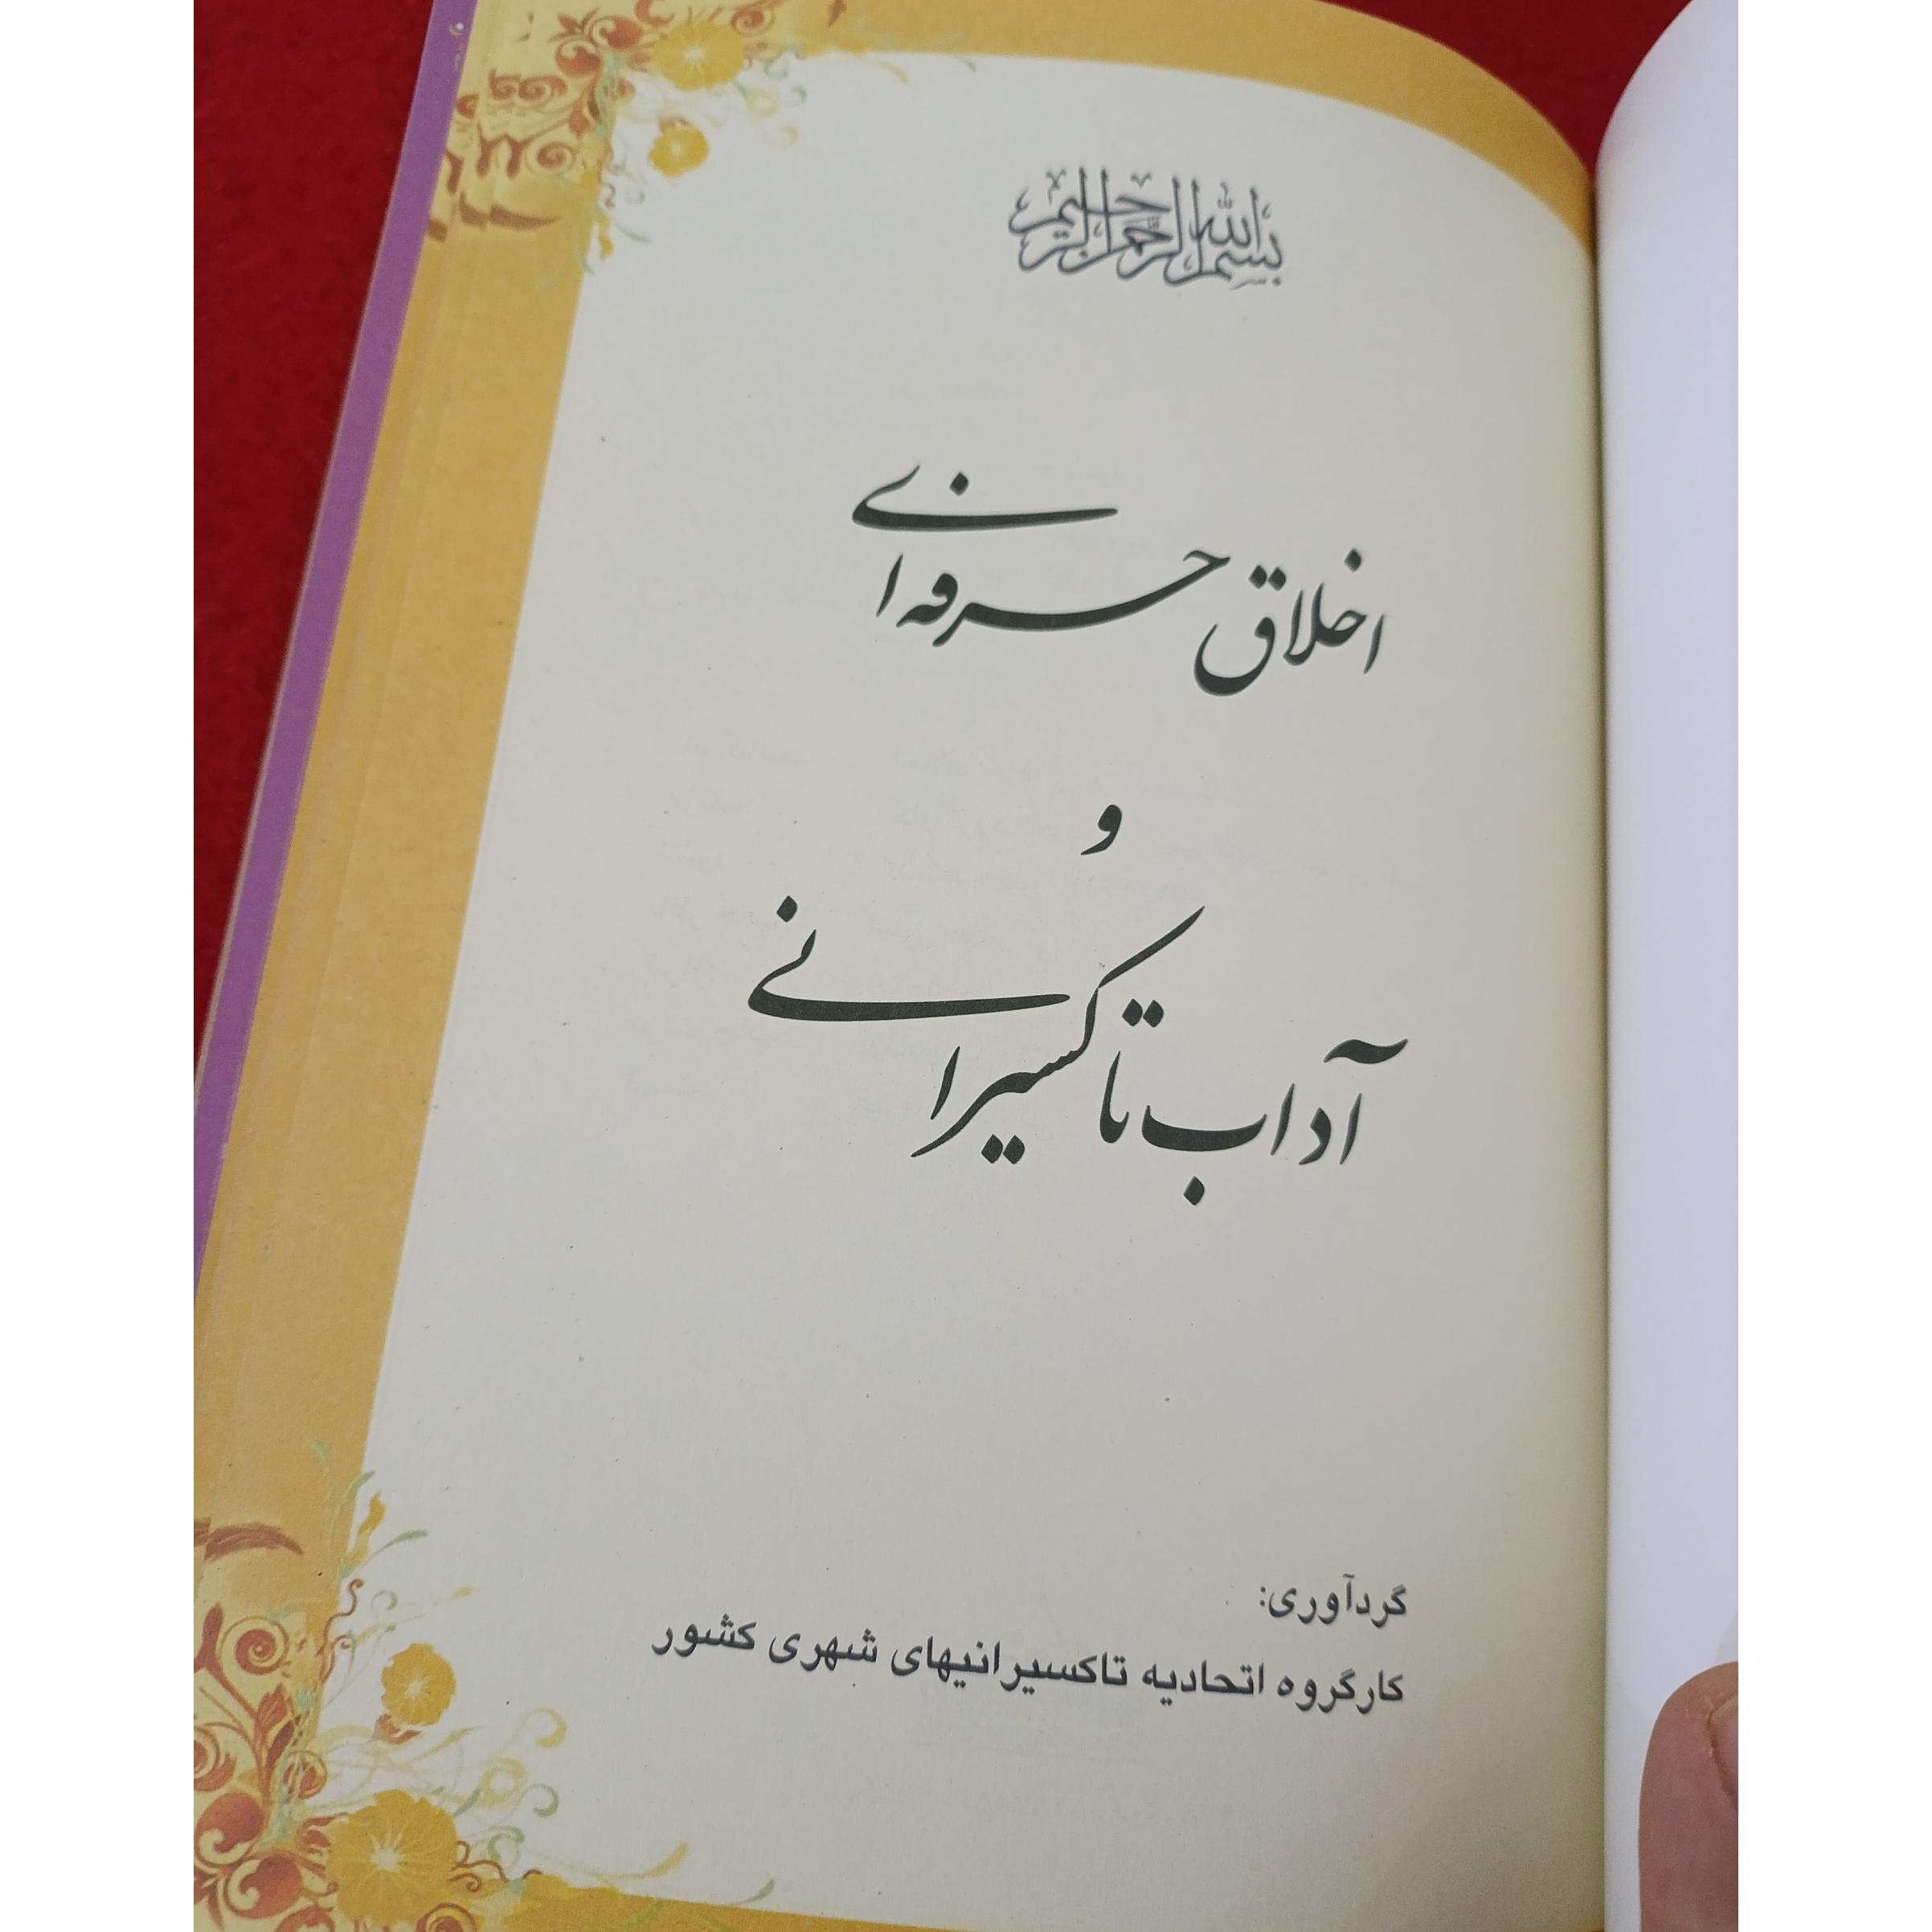 بسم الله الرحمن الرحیم
اخلاق حرفه ای
و
آداب تاکسیرانی
گردآوری:
کارگروه اتحادیه تاکسیرانیهای شهری کشور